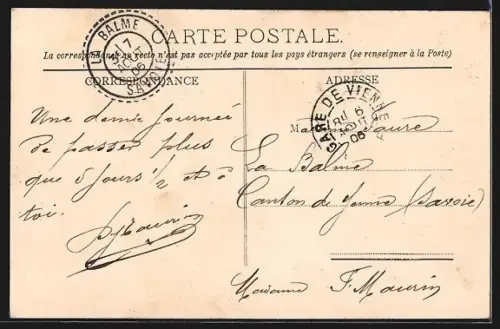 CARTE POSTALE.
La correspondance au recto n'est pas acceptée par tous les pays étrangers (se renseigner à la Poste)
CORRESPONDANCE
ADRESSE
LA BALME
7
AOUT
06
SAVOIE
GARE DE VIENNE
6
AOUT
06
Une demie journée
de passer plus
que 5 jours ½ et à
toi.
Faure
La Balme
Canton de Yenne (Savoie)
Madame F. Maurin